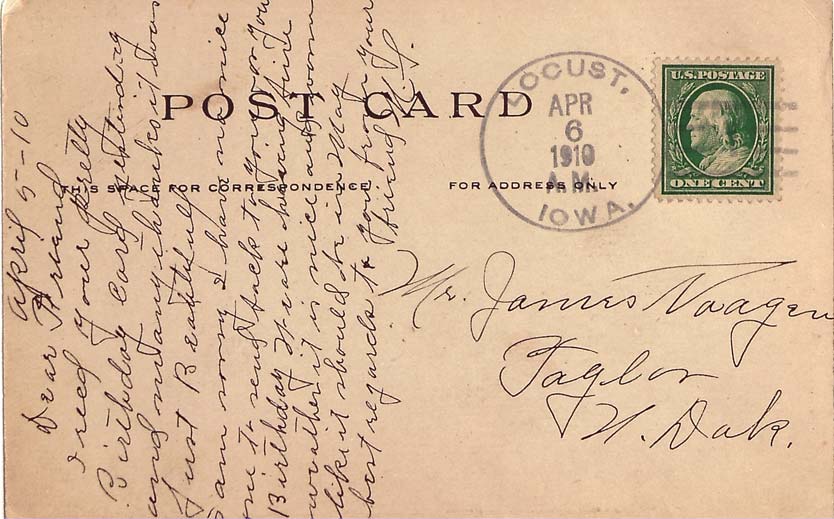 POST CARD
THIS SPACE FOR CORRESPONDENCE
FOR ADDRESS ONLY
LOCUST,
APR
6
1910
A.M.
IOWA.
U.S. POSTAGE
ONE CENT
April 5-10
Dear Friend
I recd your pretty
Birthday card yesterday
and many thanks it was
Just Beautiful
I am sorry I have no nice
one to send back to you for your
Birthday We are having fine
weather it is nice and warm
like it should be in May
best regards to you from your
friend
Mr. James Naagen
Taylor
N. Dak.